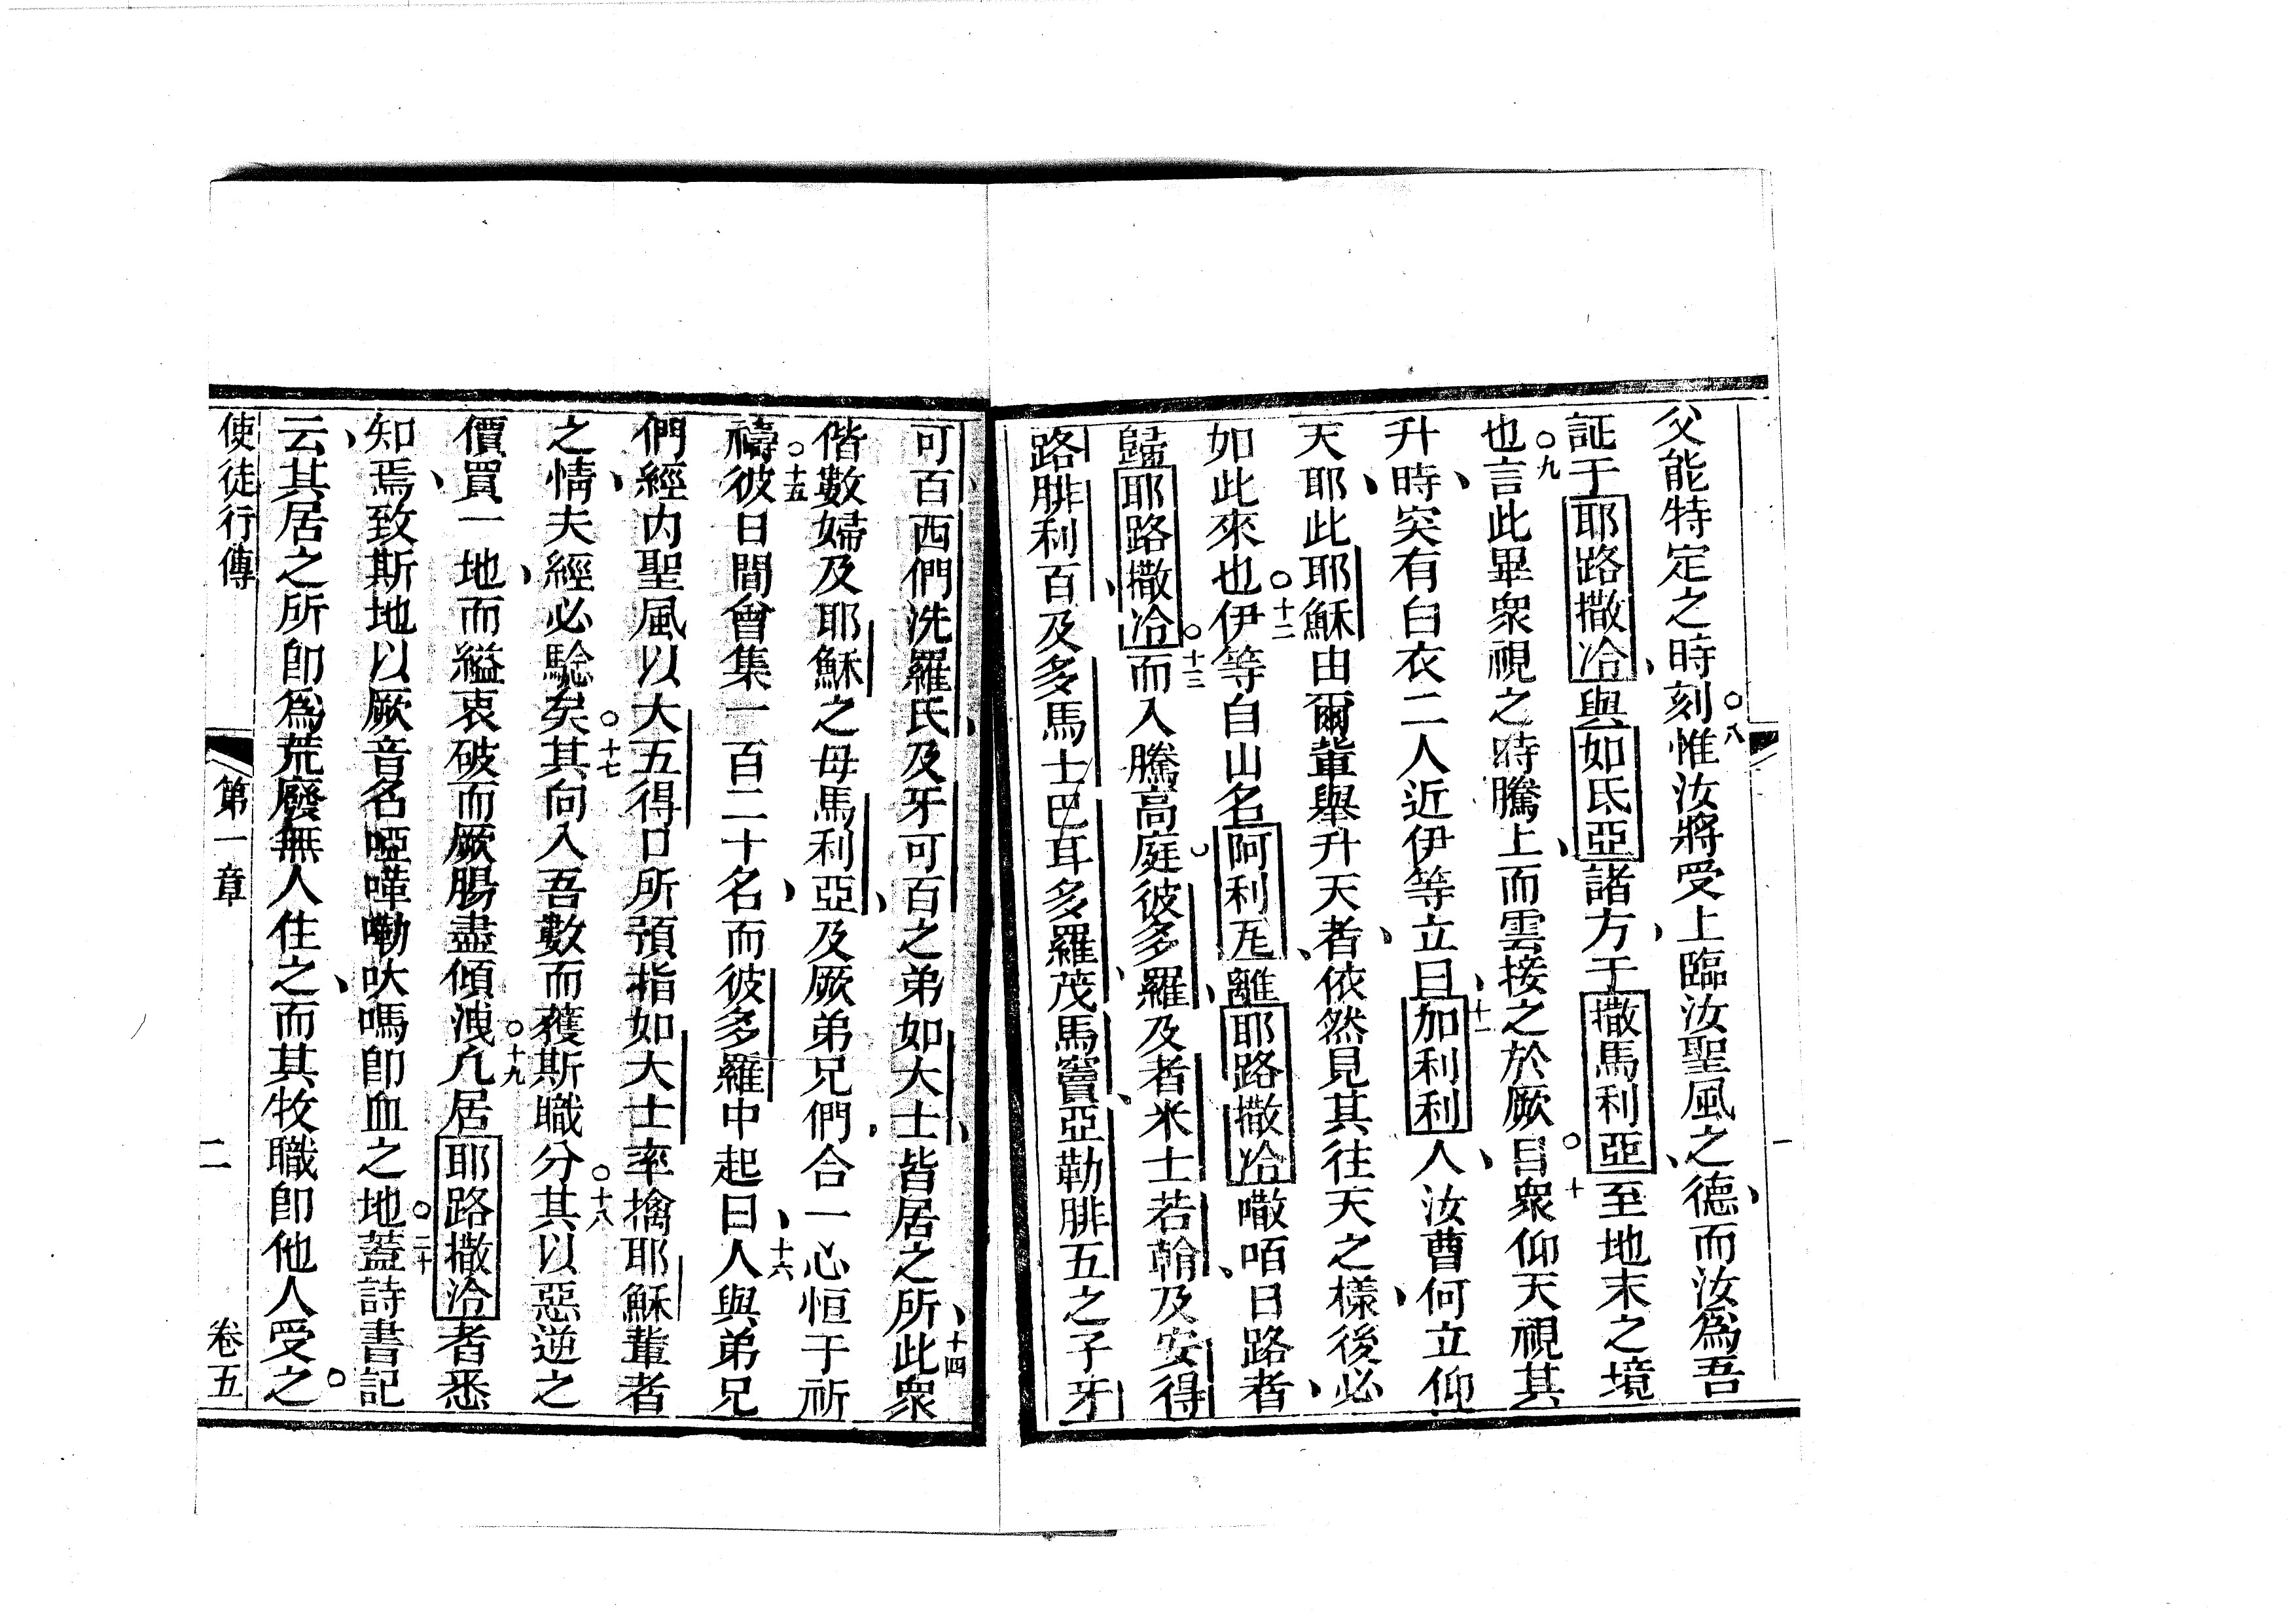 父能特定之時刻○八惟汝將受上臨汝聖風之德、而汝為吾
証于耶路撒冾、與如氐亞諸方、于撒馬利亞、至地末之境
也○九言此畢眾視之時騰上、而雲接之於厥目○十眾仰天視其
升時、突有白衣二人近伊等立曰、十一加利利人、汝曹何立仰
天、耶此耶穌由爾輩舉升天者、依然見其往天之樣、後必
如此來也○十二伊等自山名阿利瓦、離耶路撒冾㗔咟日路者、
歸耶路撒冾○十三而入騰高庭彼多羅、及者米士若翰、及安得
路腓利百、及多馬士巴耳多羅茂、馬竇、亞勒腓五之子牙
可百、西們洗羅氐、及牙可百之弟如大士、皆居之所、十四此眾
偕數婦及耶穌之母馬利亞、及厥弟兄們、合一心恒于祈
禱○十五彼日間會集一百二十名、而彼多羅中起曰、十六人與弟兄
們經內聖風以大五得口所預指如大士率擒耶穌輩者
之情、夫經必騐矣○十七其向入吾數而獲斯職分○十八其以惡逆之
價買一地、而縊衷破而厥腸盡傾洩○十九凢居耶路撒冾者悉
知焉、致斯地以厥音名啞嚾嘞吠嗎卽血之地○二十蓋詩書記
云、其居之所卽為荒廢無人住之、而其牧職卽他人受之○
使徒行傳 第一章 二 卷五